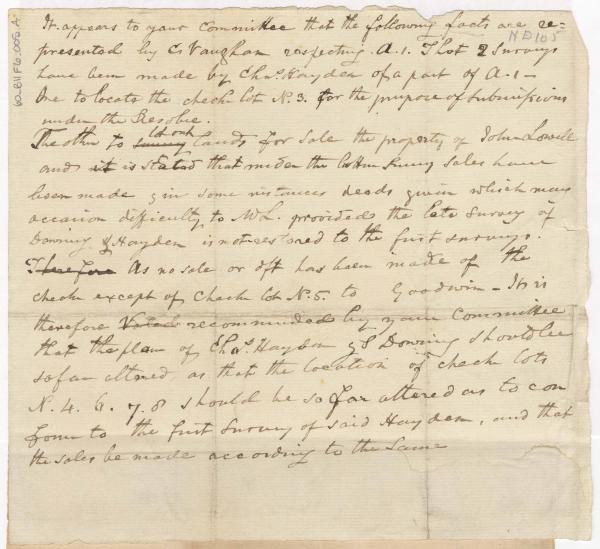 It appears to your Committee that the following facts are re=
ND105
presented by C. Vaughan respecting A. 1. That 2 Surveys
have been made by Chas. Hayden of a part of A-1 -
One to locate the check lot N. 3. for the purpose of submissions
under the Resolve.
The other to lands for sale the property of John Lowell
and it is stated that under the latter sales have
been made & in some instances deeds given which may
occasion difficulty to Mr L. provided the late Survey of
Downing & Hayden is not restored to the first surveys.
Therefore As no sale or dft has been made of the
checks except of Check lot N. 5. to Goodwin - It is
therefore Voted recommended by your Committee
that the plan of Chas. Hayden & S Downing should be
so far altered, as that the location of check lots
N. 4. 6. 7. 8 should be so far altered as to con
form to the first survey of said Hayden, and that
the sales be made according to the Same